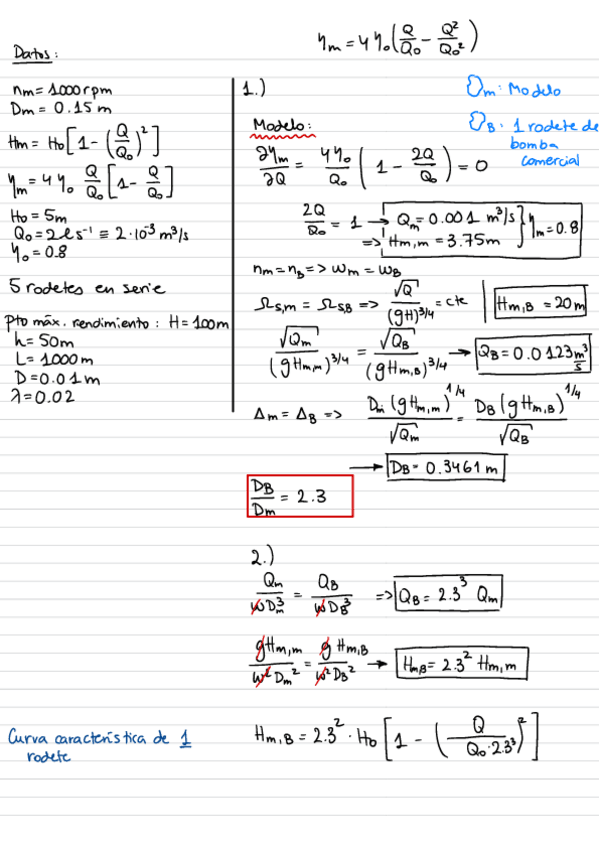 ηm = 4 η₀ (Q/Q₀ − Q²/Q₀²)
Datos:
nm = 1000 rpm
Dm = 0.15 m
Hm = H₀[1 − (Q/Q₀)²]
ηm = 4 η₀ Q/Q₀ [1 − Q/Q₀]
H₀ = 5m
Q₀ = 2 ℓ s⁻¹ ≡ 2·10⁻³ m³/s
η₀ = 0.8
5 rodetes en serie
Pto máx. rendimiento : H = 100m
h = 50m
L = 1000m
D = 0.01 m
λ = 0.02
1.)
m : Modelo
B : 1 rodete de
bomba
comercial
Modelo:
∂ηm/∂Q = 4η₀/Q₀ (1 − 2Q/Q₀) = 0
2Q/Q₀ = 1 → Qm = 0.001 m³/s
=> Hm,m = 3.75m } ηm = 0.8
nm = nB => ωm = ωB
Ωs,m = Ωs,B => √Q/(gH)^3/4 = cte | Hm,B = 20m
√Qm/(gHm,m)^3/4 = √QB/(gHm,B)^3/4 → QB = 0.0123 m³/s
Δm = ΔB => Dm(gHm,m)^1/4/√Qm = DB(gHm,B)^1/4/√QB
→ DB = 0.3461 m
DB/Dm = 2.3
2.)
Qm/ωDm³ = QB/ωDB³ => QB = 2.3³ Qm
gHm,m/ω²Dm² = gHm,B/ω²DB² → HmB = 2.3² Hm,m
Curva característica de 1
rodete
Hm,B = 2.3² · H₀ [1 − (Q/Q₀·2.3³)²]